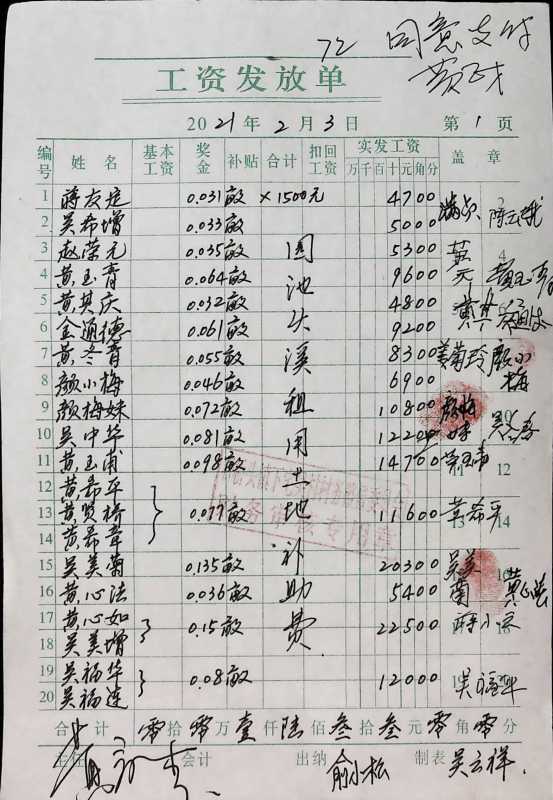 72 同意支付
工资发放单
2021年2月3日 第1页
编号 姓名 基本工资 奖金 补贴 合计 扣回工资 实发工资 盖章
万千百十元角分
1 蒋友定 0.031亩 ×1500元 4700
2 吴希增 0.033亩 5000
3 赵荣元 0.035亩 5300
4 黄玉青 0.064亩 9600
5 黄其庆 0.032亩 4800
6 金通德 0.061亩 9200
7 黄冬青 0.055亩 8300 姜菊玲 颜小梅
8 颜小梅 0.046亩 6900
9 颜梅妹 0.072亩 10800
10 吴中华 0.081亩 12200
11 黄玉甫 0.098亩 14700
12 黄希平
13 黄贤桥 0.077亩 11600 黄希平
14 黄希章
15 吴美菊 0.135亩 20300 吴美菊
16 黄心法 0.036亩 5400
17 黄心如 0.15亩 22500
18 吴美增
19 吴福华 0.08亩 12000 吴福华
20 吴福连
池头溪租用土地补助费
合计 零拾零万壹仟陆佰叁拾叁元零角零分
主任 会计 出纳 俞小松 制表 吴云祥